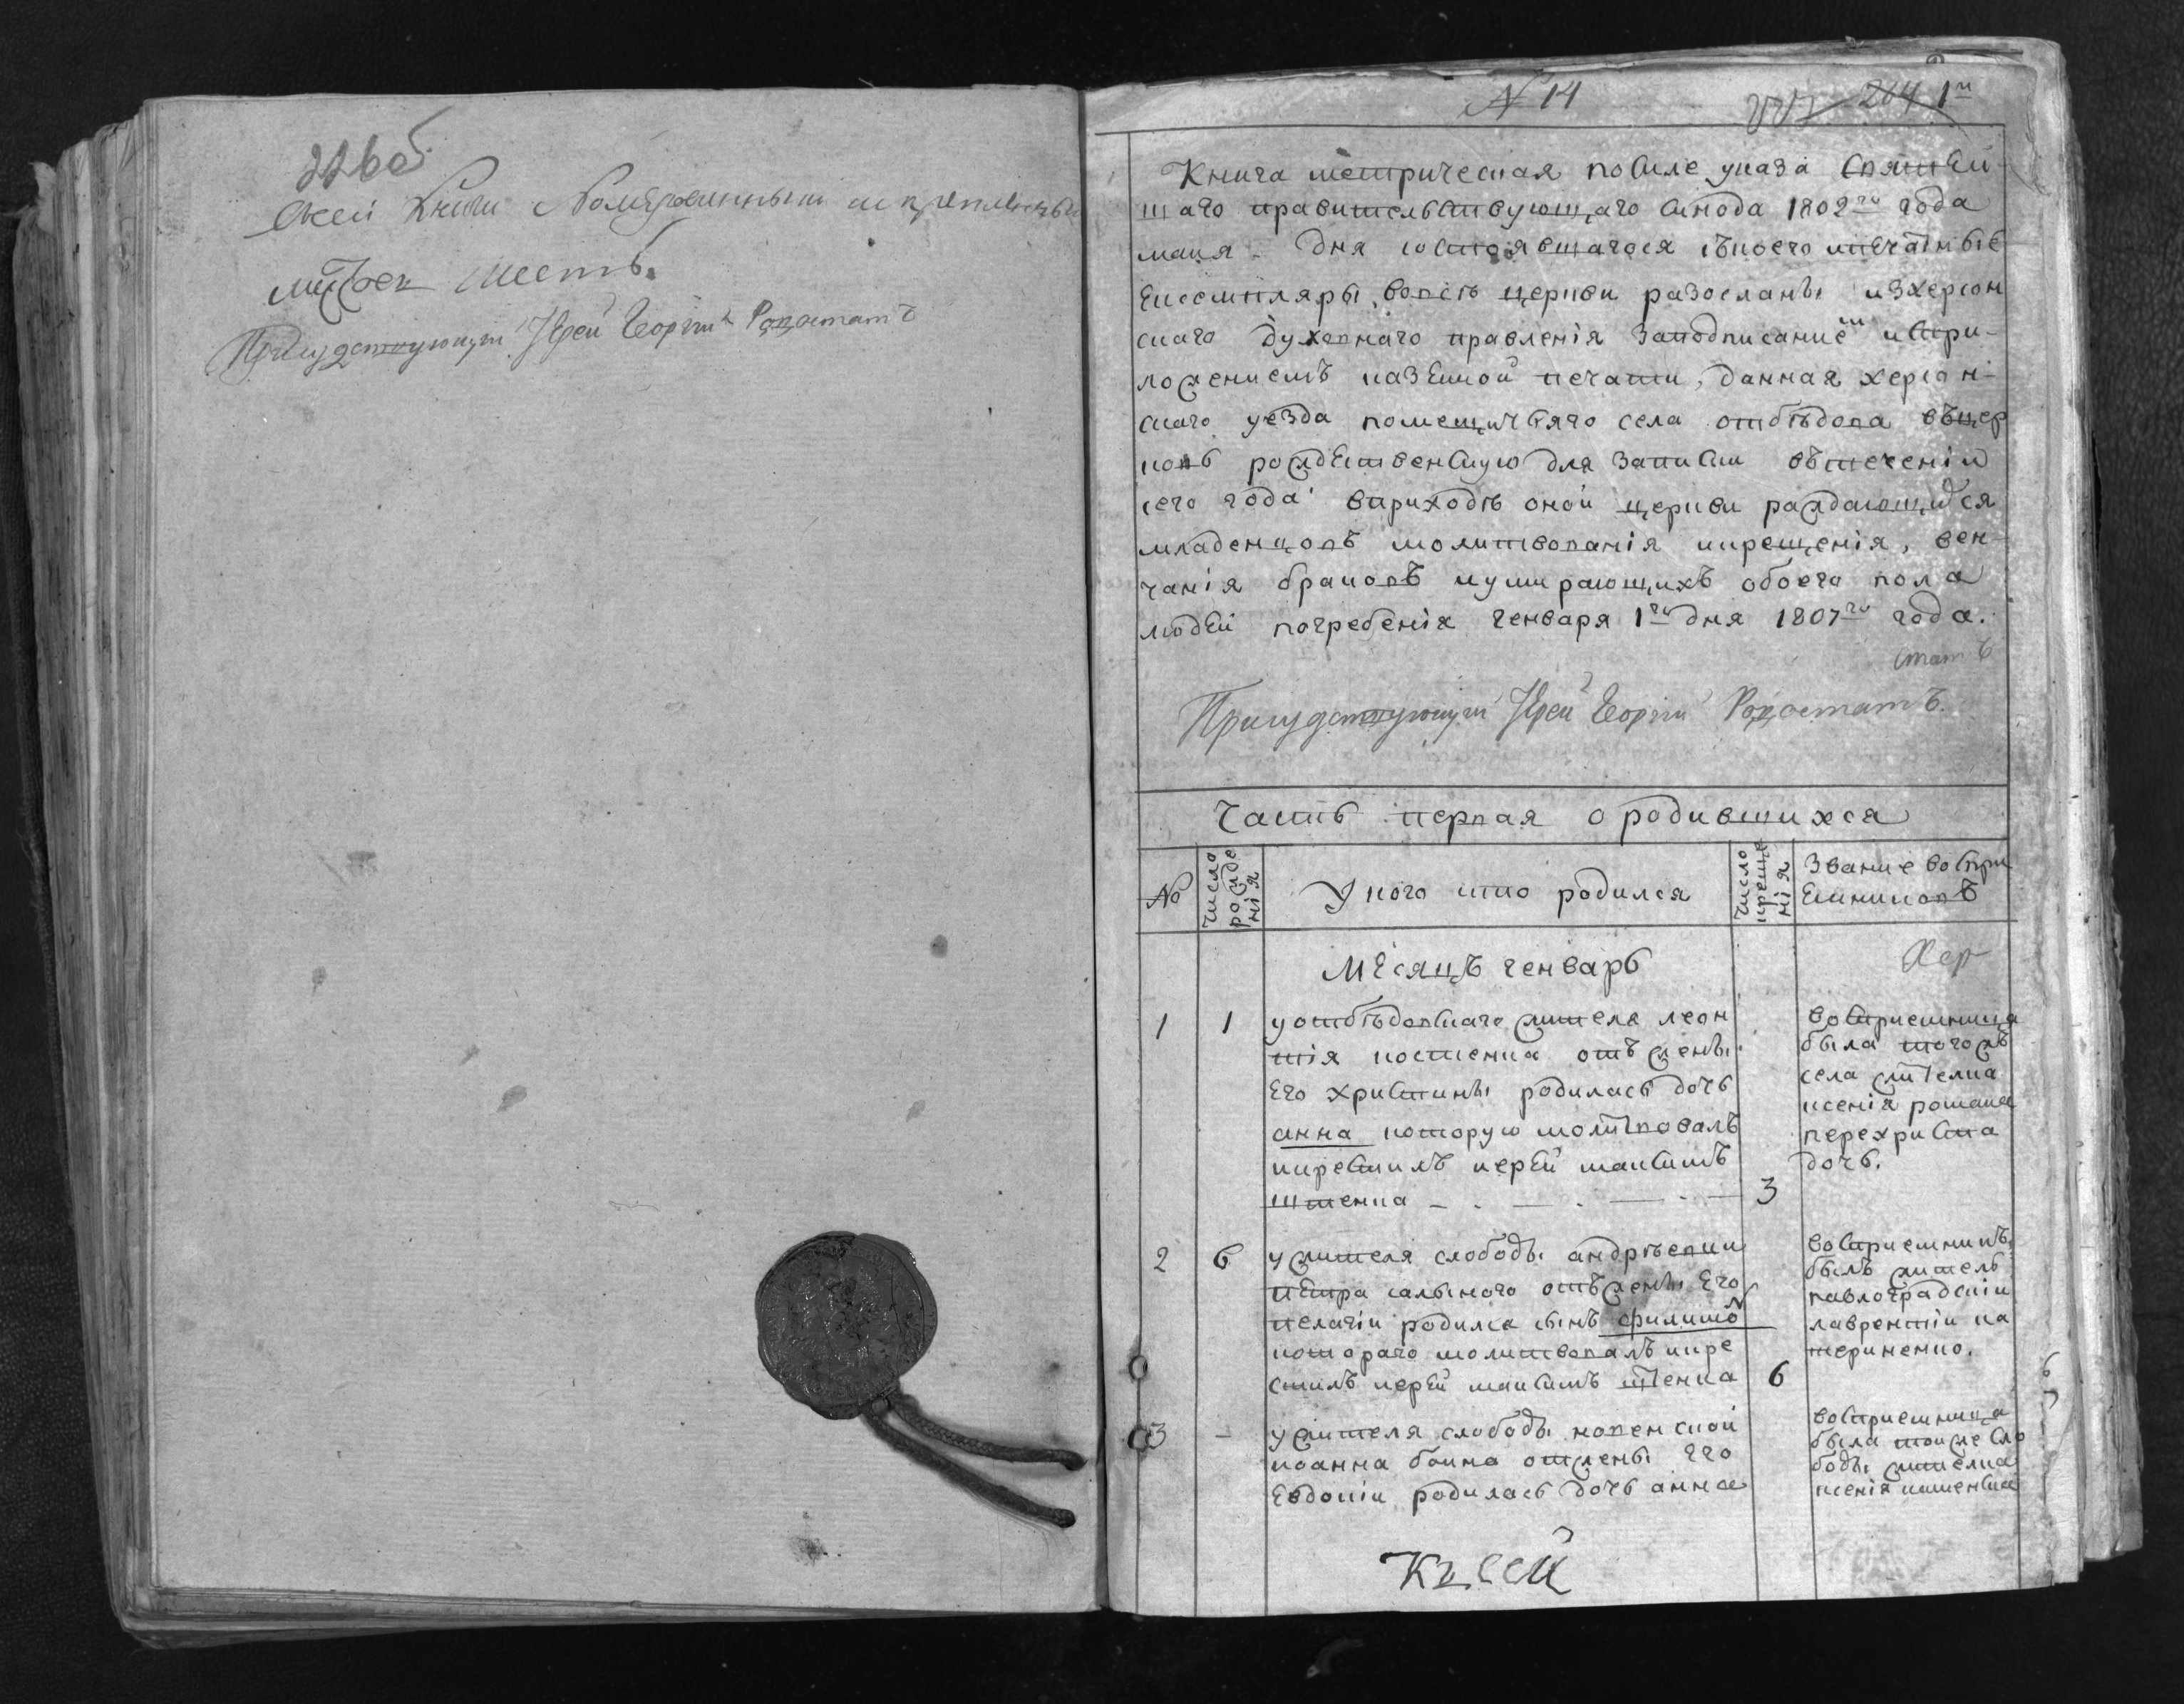 226об
Всей книги номерованныхъ и крепленныхъ
листовъ шесть.
Присудствующій Іерей Георгій
№ 14
264 1й
Книга метрическая по силе указа святей-
шаго правительствующаго синода 1802го года
маия дня состоявшагося съ коего печатные
екземпляры во всѣ церкви разосланы изхерсон
скаго духовнаго правленія заподписаниемъ испри-
ложениемъ казенной печати, данная херсон-
скаго уезда помещичьяго села отбѣдова въцер
ковь рождественскую для записки втечении
сего года вприходѣ оной церкви раждающихся
младенцовъ молитвования икрещенія, вен-
чанія браковъ иумирающихъ обоего пола
людей погребенія генваря 1го дня 1807го года.
Присудствующій Іерей Георгій
Часть первая о родившихся
№
число рожденія
У кого кто родился
число крещенія
Звание воспри
емниковъ
Месяцъ генварь
Хер-
1
1
у отбѣдовскаго жителя леон
тія костенка отъ жены
его христины родилась дочь
анна которую молитвовалъ
икрестилъ иерей максимъ
штенка
3
восприемница
была тогожъ
села жителка
ксенія романа
перехриста
дочь.
2
6
у жителя слободы андрѣевки
петра салъного отъ жены его
пелагіи родился сынъ филимон
которого молитвовалъ икре
стилъ иерей максимъ штенка
6
восприемникъ
былъ житель
павлоградскій
лаврентій ка
териненко.
3
-
у жителя слободы ковенской
иоанна бойка отжены его
евдокіи родилась дочь анна
восприемница
была тойже сло
боды жителка
ксенія
Къ сей